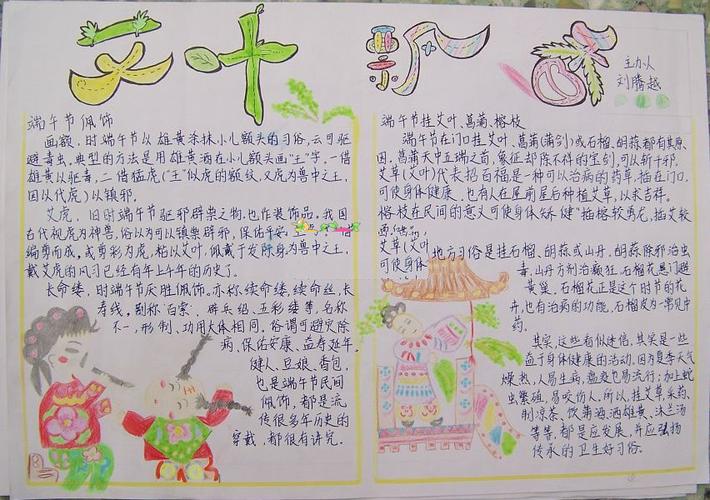 艾叶飘香
主办人
刘腾越
端午节佩饰
画额，时端午节以雄黄涂抹小儿额头的习俗，云可驱
避毒虫，典型的方法是用雄黄酒在小儿额头画“王”字，一借
雄黄以驱毒，二借猛虎（“王”似虎的额纹，又虎为兽中之王，
因以代虎）以镇邪。
艾虎，旧时端午节驱邪辟祟之物，也作装饰品。我国
古代视虎为神兽，俗以为可以镇祟辟邪，保佑安宁
编剪而成，或剪彩为虎，粘以艾叶，佩戴于发际身为兽中之王，
戴艾虎的风习已经有年上午年的历史了。
长命缕，时端午节厌胜佩饰。亦称续命缕，续命丝，长
寿线，别称“百索”、辟兵绍、五彩缕等，名称
不一，形制、功用大体相同。俗谓可避灾除
病、保佑安康、益寿延年。
健人、豆娘、香包，
也是端午节民间
佩饰，都是流
传很多年历史的
穿戴，都很有讲究。
端午节挂艾叶、菖蒲、榕枝
端午节在门口挂艾叶、菖蒲（蒲剑）或石榴、胡蒜，都有其原
因，菖蒲天中五瑞之首，象征却除不祥的宝剑，可以斩千邪，
艾草（艾叶）代表招百福是一种可以治病的药草，插在门口，
可使身体健康，也有人在屋前屋后种植艾草，以求吉祥。
榕枝在民间的意义可使身体矫健“插榕较勇龙，插艾较
艾草（艾叶）
可使身体 地方习俗是挂石榴、胡蒜或山丹，胡蒜除邪治虫
毒，山丹方剂治癫狂，石榴花悬门避
黄巢，石榴花正是这个时节的花
卉，也有治病的功能，石榴皮为一常见中
药。
其实，这些看似迷信，其实是一些
益于身体健康的活动，因为夏季天气
燥热，人易生病，瘟疫也易流行；加上蛇
虫繁殖，易咬伤人，所以，挂艾草采药、
制凉茶、饮菖蒲酒洒雄黄、沐兰汤
等等，都是应发展，并应弘扬
传承的卫生好习俗。